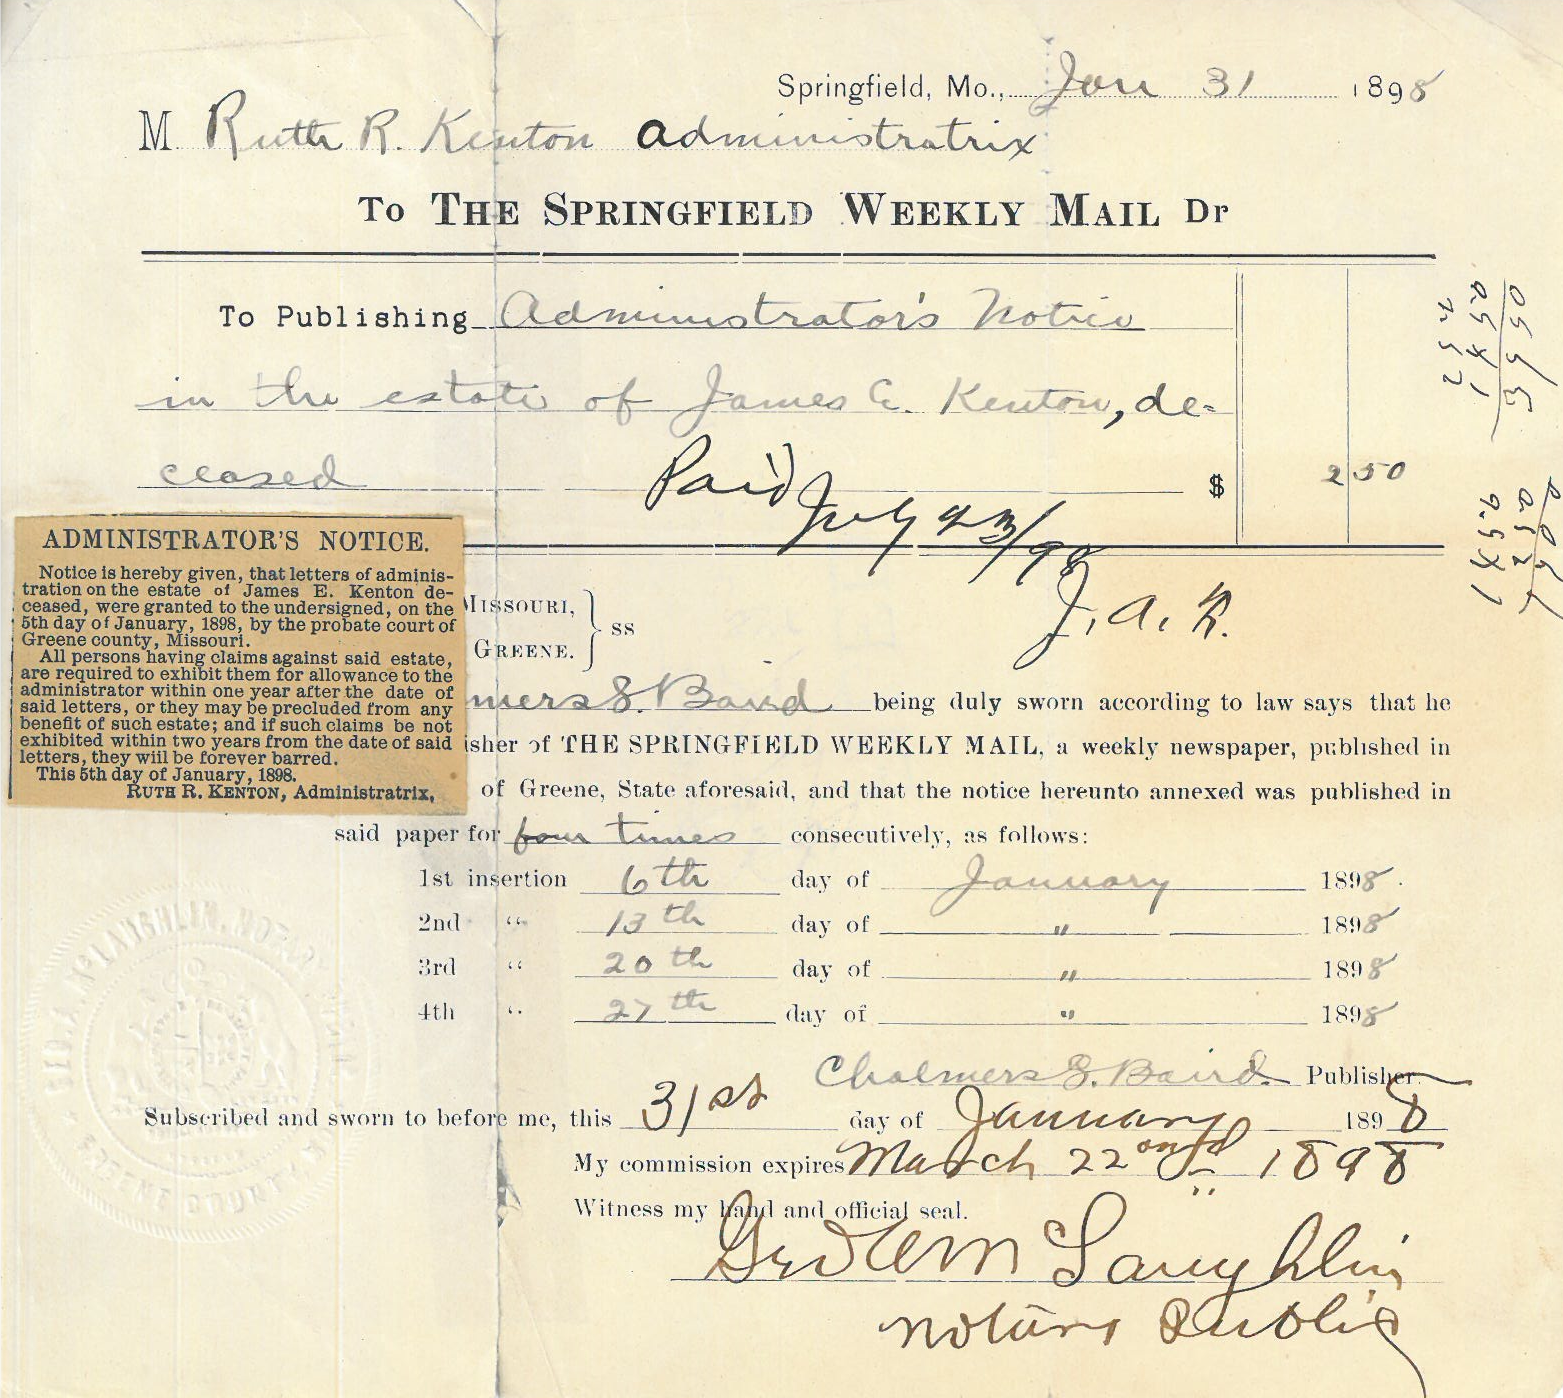 Springfield, Mo., Jan 31 1898
M Ruth R. Kenton Administratrix
To THE SPRINGFIELD WEEKLY MAIL Dr
To Publishing Administrator's Notice
in the estate of James E. Kenton, de-
ceased $ 2 50
Paid July 23/98
J. A. K.
ADMINISTRATOR'S NOTICE.
Notice is hereby given, that letters of adminis-
tration on the estate of James E. Kenton de-
ceased, were granted to the undersigned, on the
5th day of January, 1898, by the probate court of
Greene county, Missouri.
All persons having claims against said estate,
are required to exhibit them for allowance to the
administrator within one year after the date of
said letters, or they may be precluded from any
benefit of such estate; and if such claims be not
exhibited within two years from the date of said
letters, they will be forever barred.
This 5th day of January, 1898.
RUTH R. KENTON, Administratrix,
MISSOURI,
GREENE. } ss
mers S. Baird being duly sworn according to law says that he
isher of THE SPRINGFIELD WEEKLY MAIL, a weekly newspaper, published in
of Greene, State aforesaid, and that the notice hereunto annexed was published in
said paper for four times consecutively, as follows:
1st insertion 6th day of January 1898.
2nd " 13th day of " 1898
3rd " 20th day of " 1898
4th " 27th day of " 1898
Chalmers S. Baird Publisher.
Subscribed and sworn to before me, this 31st day of January 1898
My commission expires March 22 1898
Witness my hand and official seal.
McLaughlin
Notary Public
McLAUGHLIN, NOTARY
GREENE COUNTY